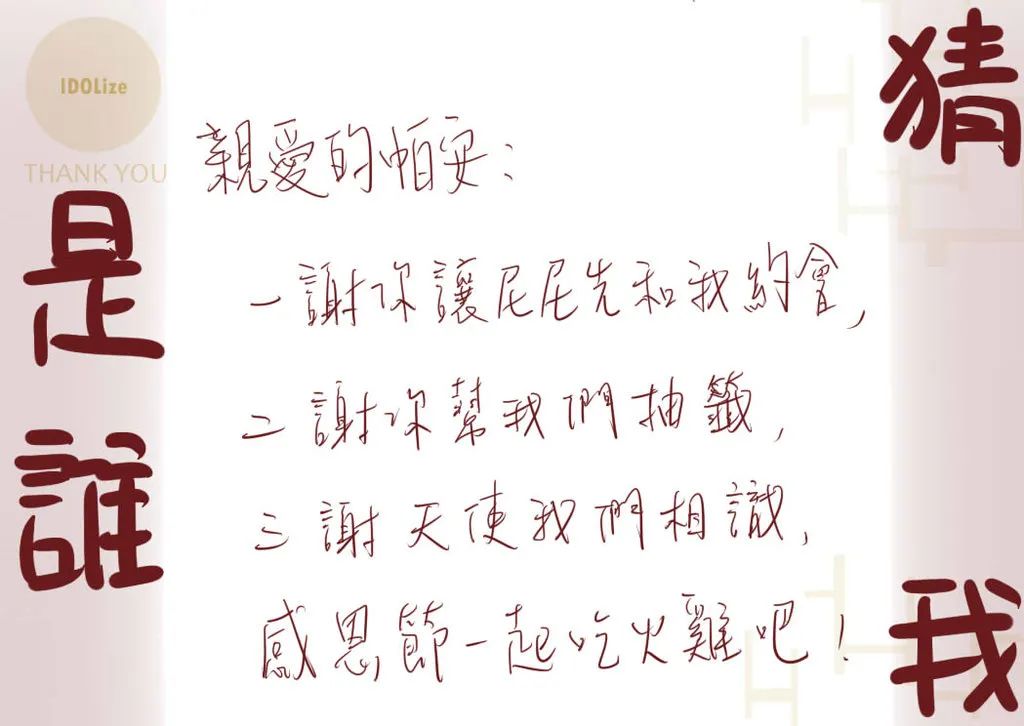 IDOLize
THANK YOU
猜我是誰
親愛的帕安：
一謝你讓尼尼先和我約會,
二謝你幫我們抽籤,
三謝天使我們相識,
感恩節一起吃火雞吧！